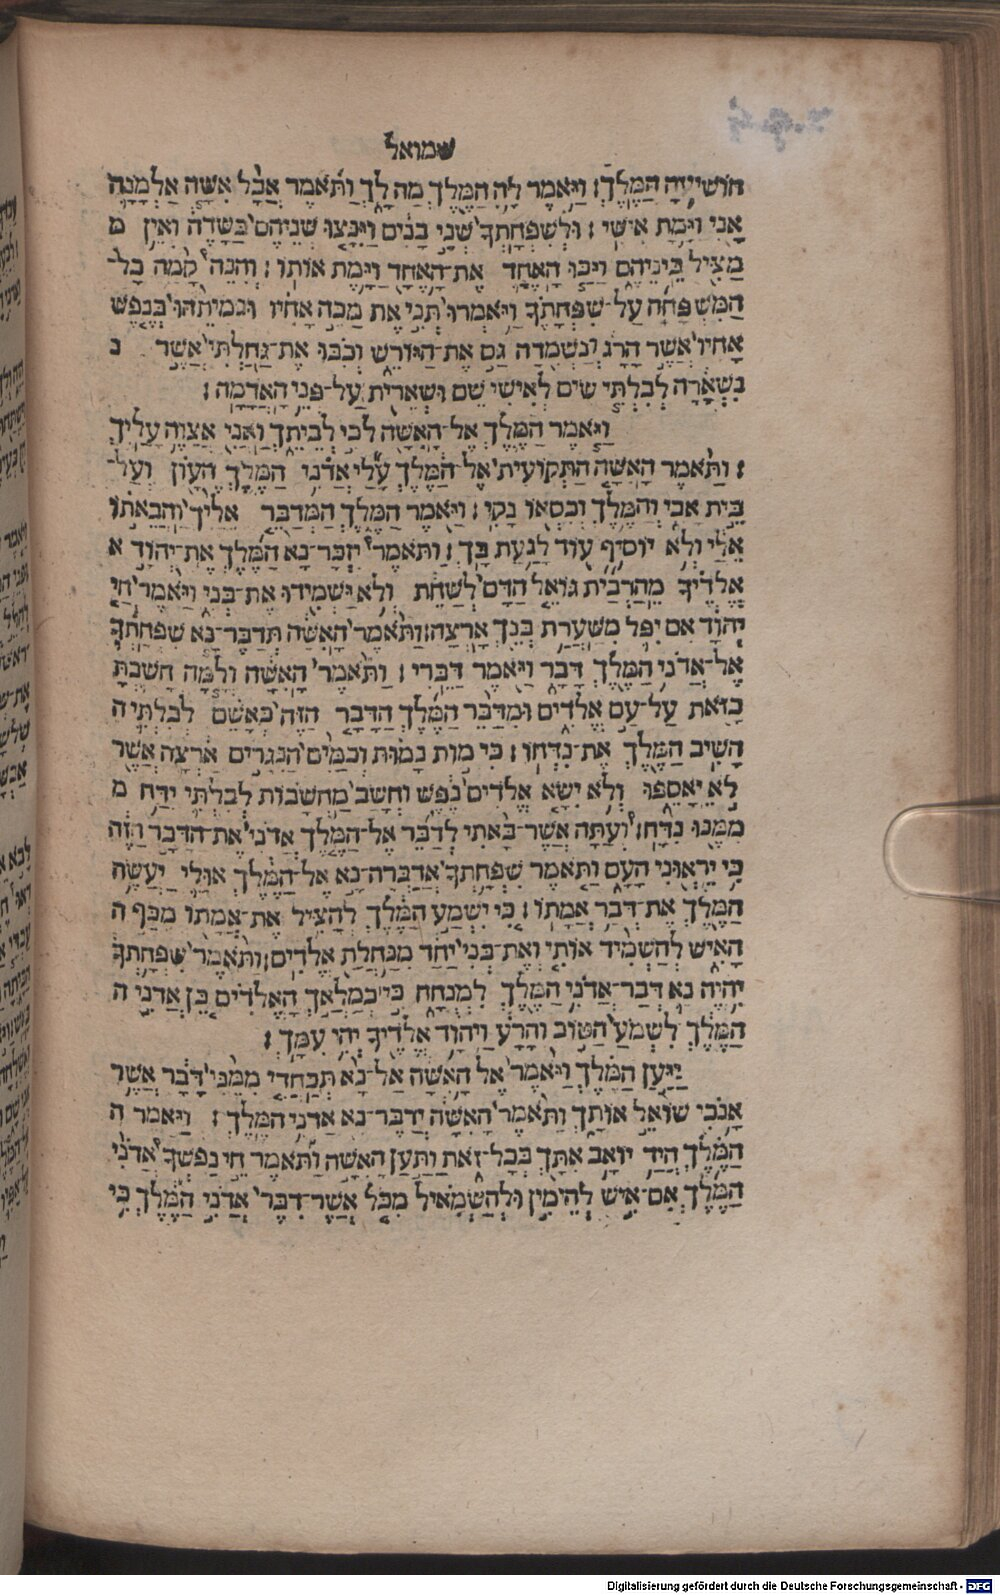 שמואל
הושיעה המלך׃ ויאמר לה המלך מה לך ותאמר אבל אשה אלמנה
אני וימת אישי׃ ולשפחתך שני בנים וינצו שניהם בשדה ואין מ
מציל ביניהם ויכו האחד את־האחד וימת אותו׃ והנה קמה כל־
המשפחה על־שפחתך ויאמרו תני את מכה אחיו ונמיתהו בנפש
אחיו אשר הרג ונשמדה גם את־היורש וכבו את־גחלתי אשר נ
נשארה לבלתי שים לאישי שם ושארית על־פני האדמה׃
ויאמר המלך אל־האשה לכי לביתך ואני אצוה עליך
׃ ותאמר האשה התקועית אל־המלך עלי אדני המלך העון ועל־
בית אבי והמלך וכסאו נקי׃ ויאמר המלך המדבר אליך והבאתו
אלי ולא יוסיף עוד לגעת בך׃ ותאמר יזכר־נא המלך את־יהוד א
אלדיך מהרבית גואל הדם לשחת ולא ישמידו את־בני ויאמר חי
יהוד אם יפל משערת בנך ארצה׃ ותאמר האשה תדבר־נא שפחתך
אל־אדני המלך דבר ויאמר דברי׃ ותאמר האשה ולמה חשבת
כזאת על־עם אלדים ומדבר המלך הדבר הזה כאשם לבלתי ה
השיב המלך את־נדחו׃ כי מות נמות וכמים הנגרים ארצה אשר
לא יאספו ולא ישא אלדים נפש וחשב מחשבות לבלתי ידח מ
ממנו נדח׃ ועתה אשר־באתי לדבר אל־המלך אדני את־הדבר הזה
כי יראוני העם ותאמר שפחתך אדברה־נא אל־המלך אולי יעשה
המלך את־דבר אמתו׃ כי ישמע המלך להציל את־אמתו מכף ה
האיש להשמיד אותי ואת־בני יחד מנחלת אלדים׃ ותאמר שפחתך
יהיה נא דבר־אדני המלך למנחה כי כמלאך האלדים כן אדני ה
המלך לשמע הטוב והרע ויהוד אלדיך יהי עמך׃
ויען המלך ויאמר אל האשה אל־נא תכחדי ממני דבר אשר
אנכי שואל אותך ותאמר האשה ידבר־נא אדני המלך׃ ויאמר ה
המלך היד יואב אתך בכל־זאת ותען האשה ותאמר חי נפשך אדני
המלך אם־איש להימין ולהשמאיל מכל אשר־דבר אדני המלך כי
Digitalisierung gefördert durch die Deutsche Forschungsgemeinschaft - DFG